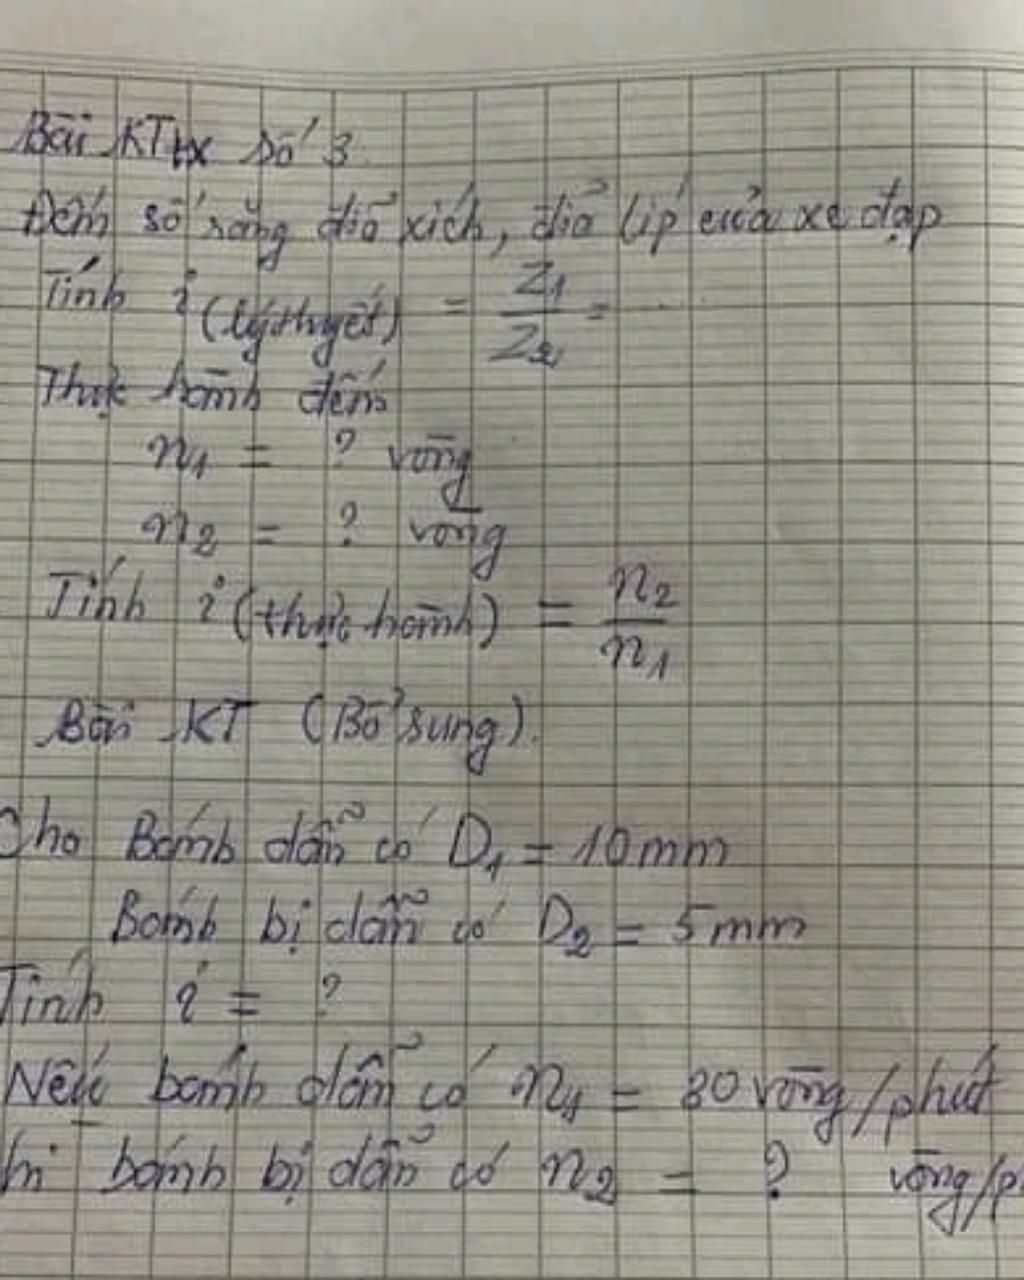 Bài KTtx số 3
Đếm số răng đĩa xích, đĩa líp của xe đạp
Tính i (lý thuyết) = Z1/Z2 = ....
Thực hành đếm
n1 = ? vòng
n2 = ? vòng
Tính i (thực hành) = n2/n1
Bài KT (Bổ sung).
Cho Bánh dẫn có D1 = 10mm
Bánh bị dẫn có D2 = 5mm
Tính i = ?
Nếu bánh dẫn có n1 = 30 vòng/phút
bánh bị dẫn có n2 = ? vòng/p